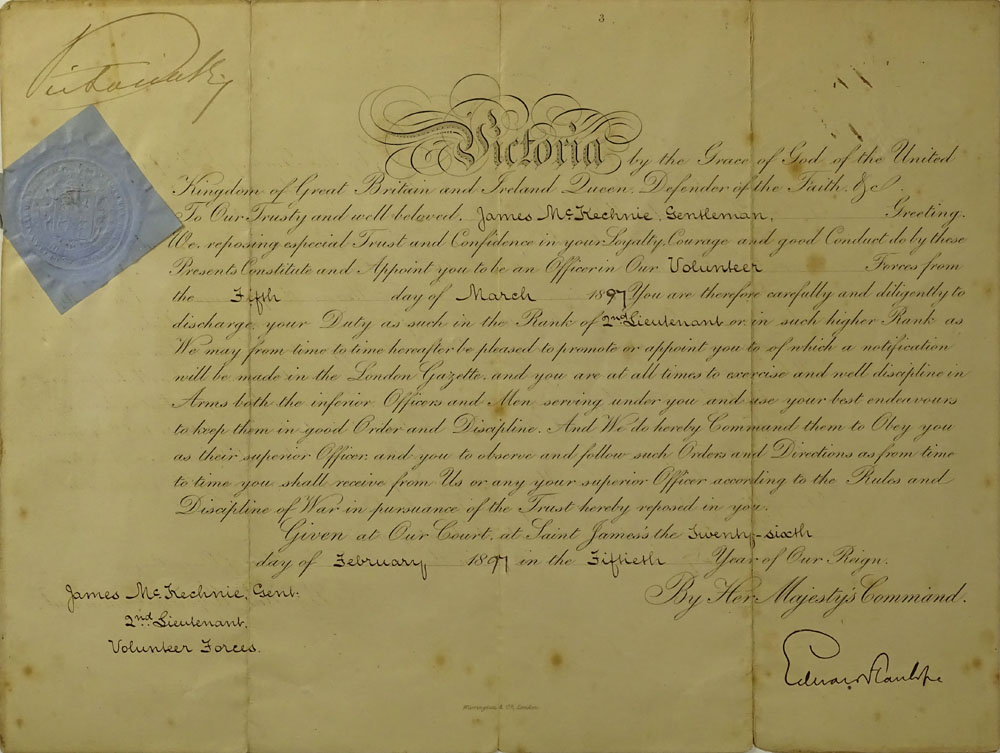 3
Victoria R
Victoria by the Grace of God, of the United
Kingdom of Great Britain and Ireland Queen, Defender of the Faith, &c.
To Our Trusty and well beloved, James McKechnie, Gentleman, Greeting.
We, reposing especial Trust and Confidence in your Loyalty, Courage and good Conduct do by these
Presents Constitute and Appoint you to be an Officer in Our Volunteer Forces from
the Fifth day of March 1887. You are therefore carefully and diligently to
discharge your Duty as such in the Rank of 2nd Lieutenant or in such higher Rank as
We may from time to time hereafter be pleased to promote or appoint you to of which a notification
will be made in the London Gazette, and you are at all times to exercise and well discipline in
Arms both the inferior Officers and Men serving under you and use your best endeavours
to keep them in good Order and Discipline. And We do hereby Command them to Obey you
as their superior Officer, and you to observe and follow such Orders and Directions as from time
to time you shall receive from Us or any your superior Officer according to the Rules and
Discipline of War in pursuance of the Trust hereby reposed in you.
Given at Our Court, at Saint James's the Twenty-sixth
day of February, 1887 in the Fiftieth Year of Our Reign.
By Her Majesty's Command.
James McKechnie, Gent:
2nd Lieutenant,
Volunteer Forces.
Edward Stanhope
Warrington & Co, London